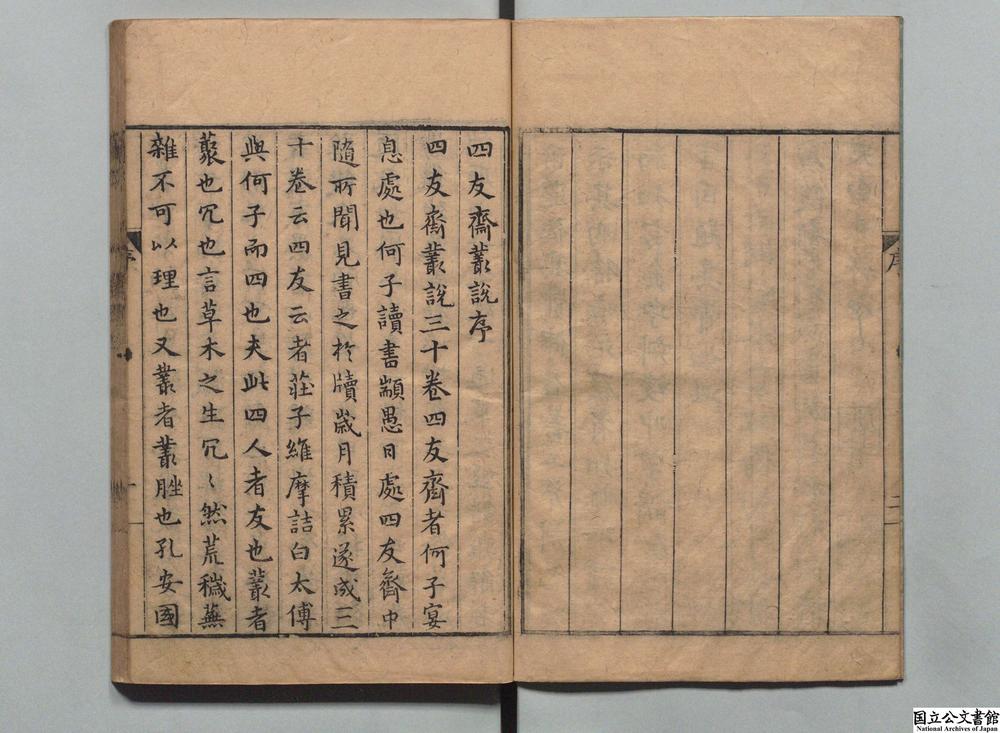 四友齋叢說序
四友齋叢說三十卷四友齋者何子宴
息處也何子讀書顓愚日處四友齋中
隨所聞見書之於牘歲月積累遂成三
十卷云四友云者莊子維摩詰白太傅
與何子而四也夫此四人者友也叢者
藂也冗也言草木之生冗〻然荒穢蕪
雜不可以理也又叢者叢脞也孔安國
序
一
序
二
国立公文書館
National Archives of Japan